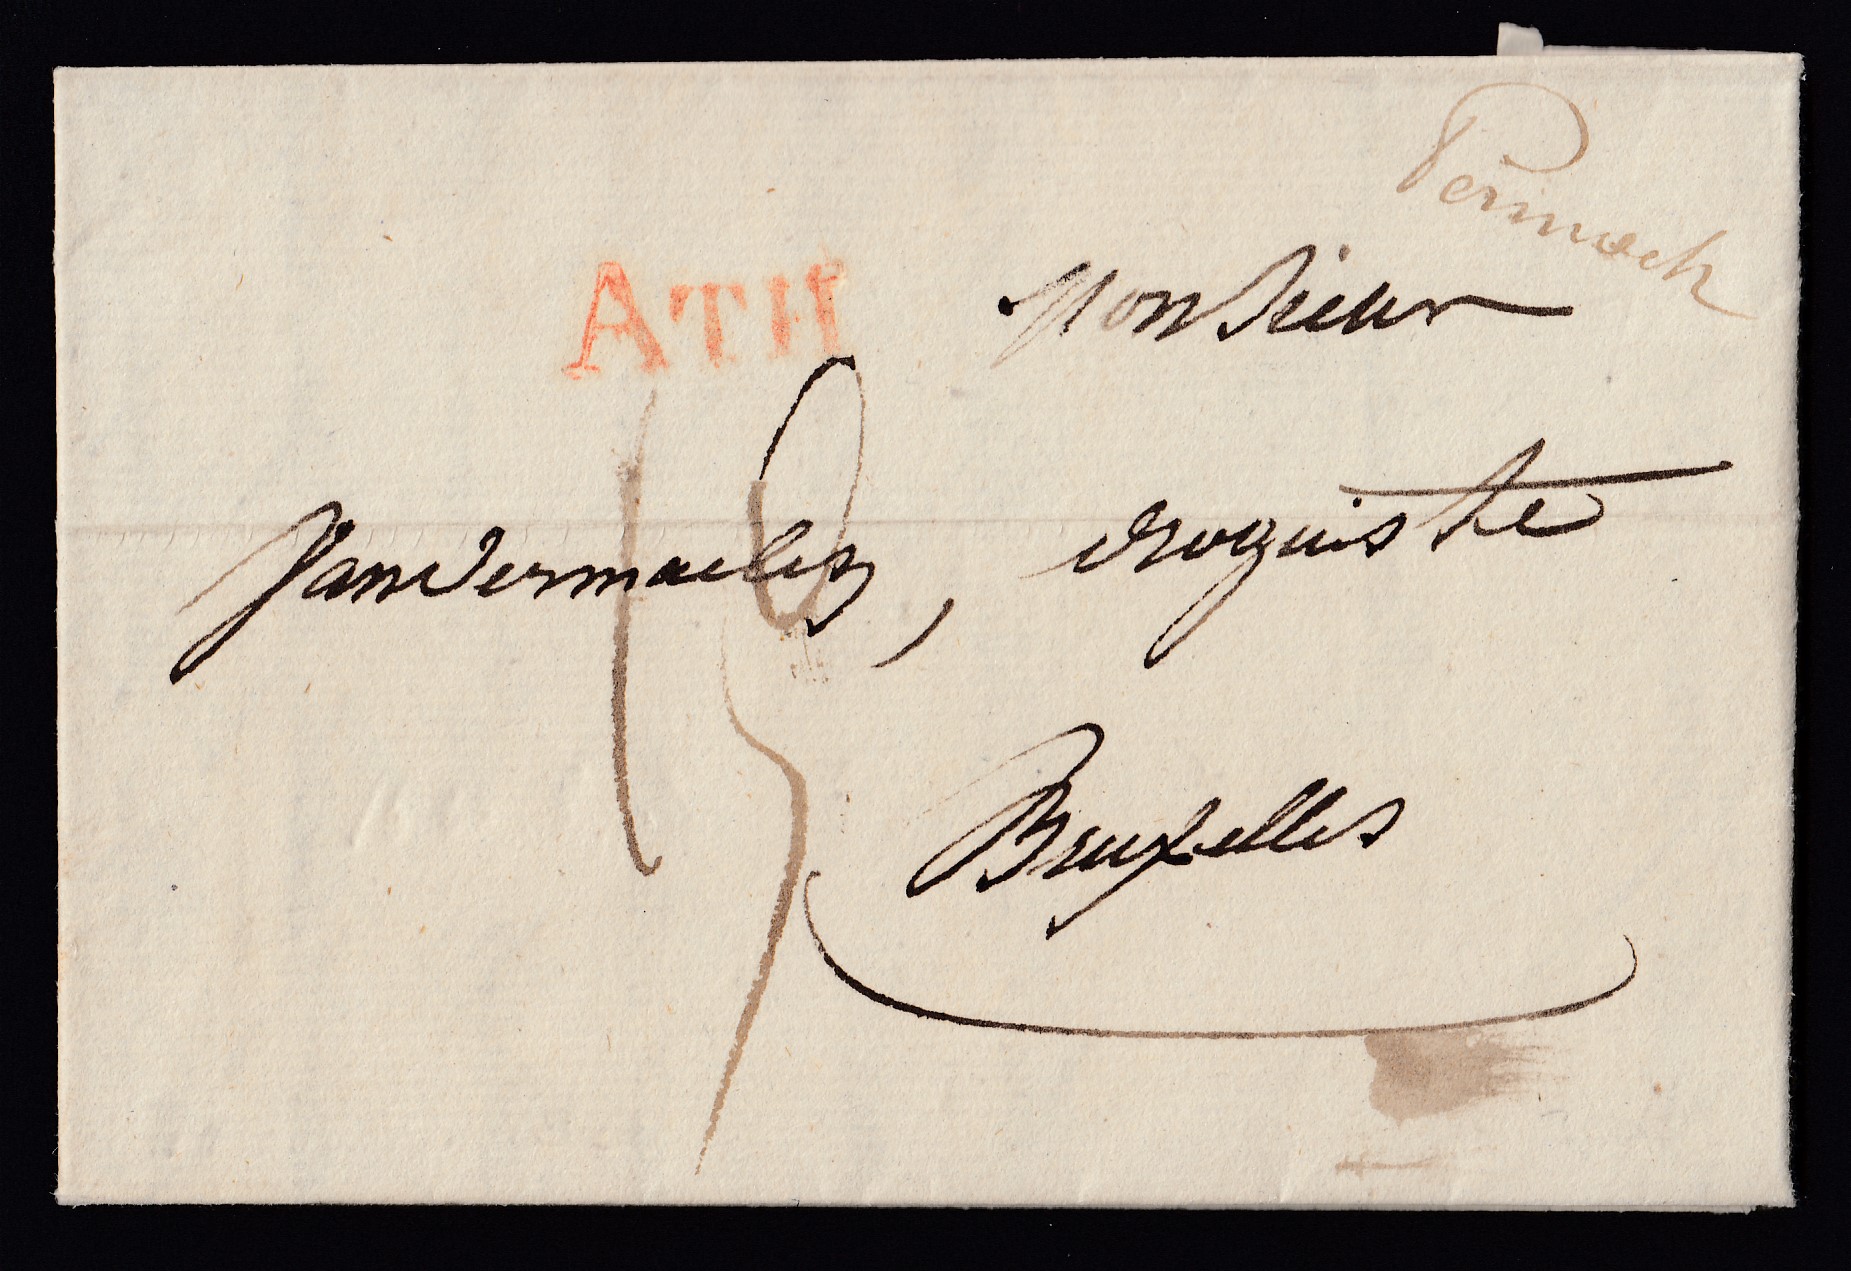 Permock
ATH
Monsieur
Vandermaelen, droguiste
Bruxelles